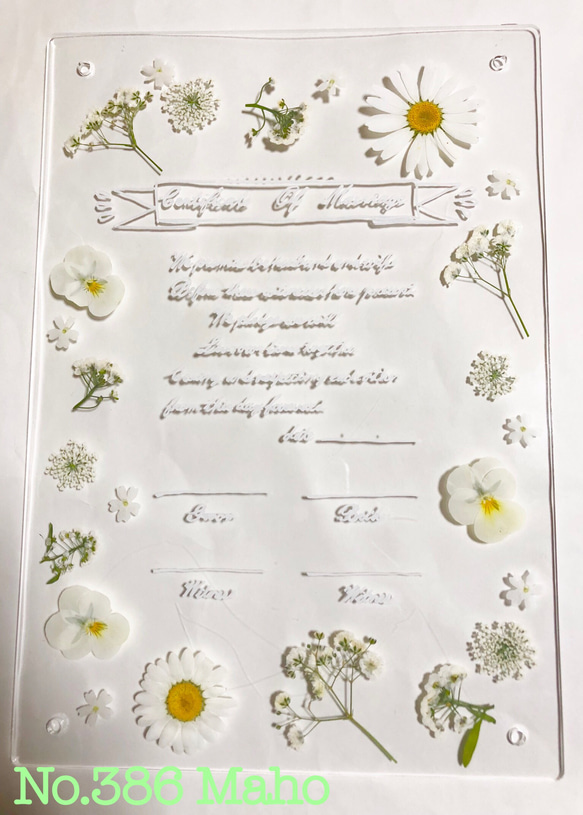 Certificate Of Marriage
We promise to husband and wife
Before these witnesses here present
We pledge we will
Love our lives together
from this day forward.
Date . . .
Groom Bride
Witness Witness
No.386 Maho